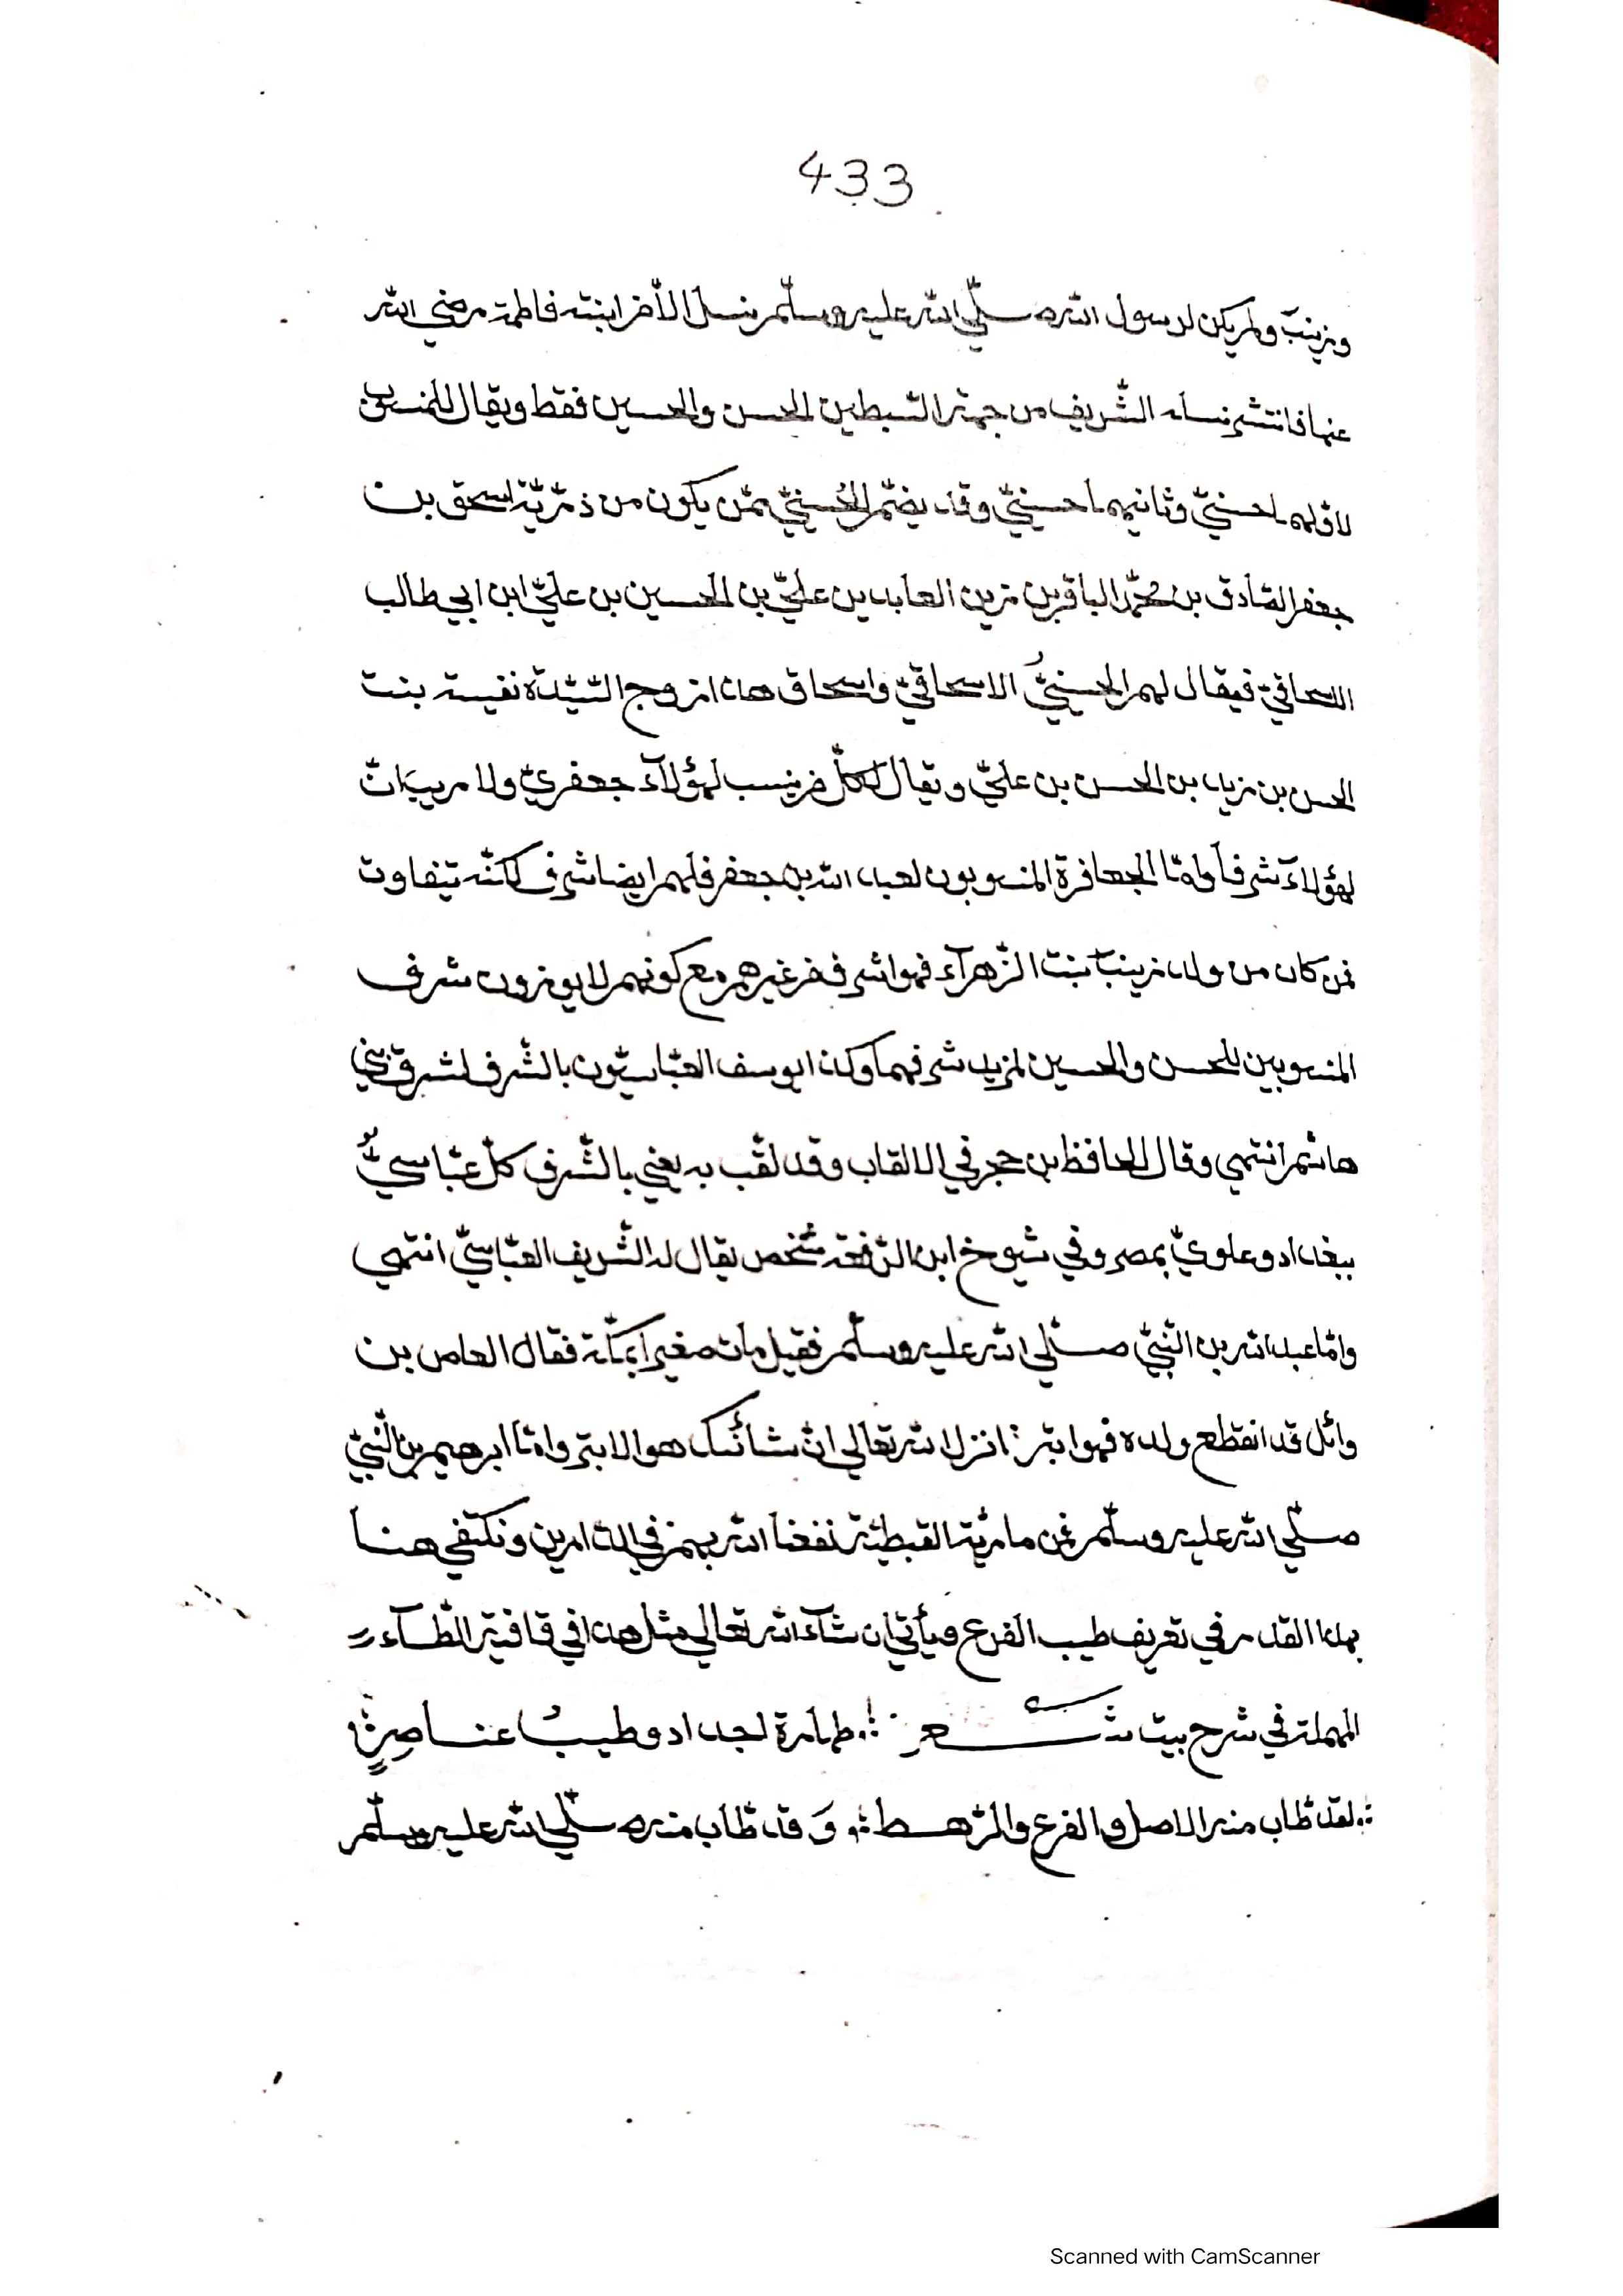 433
وزينبَ ولم يكن لرسول الله صلّي الله عليه وسلّم نسل الّا من ابنته فاطمة رضي الله
عنها فانتشر نسله الشّريف من جهة السّبطين الحسن والحسين فقط ويقال للمنسوب
لاوّلهما حسنيّ وثانيهما حسينيّ وقد يضمّ للحُسينيّ ممّن يكون من ذرّيّة اسحق بن
جعفر الصّادق بن محمّد الباقر بن زين العابدين عليّ بن الحسين بن عليّ ابن ابي طالب
الاسحاقيّ فيقال لهم الحسينيُّ الاسحاقيّ واسحاق هذا زوج السّيّدة نفيسة بنت
الحسن بن زيد بن الحسن بن عليّ ويقال لكلّ من ينسب لهؤلآء جعفريّ ولا ريب انّ
لهؤلآء شرفاً وامّا الجعافرة المنسوبون لعبد الله بن جعفر فلهم ايضا شرف لكنّه يتفاوت
فمن كان من ولد زينبَ بنت الزّهرآء فهو اشرف من غيرهم مع كونهم لا يوازون شرف
المنسوبين للحسن والحسين لمزيد شرفهما وكذا يوصف العبّاسيّون بالشّرف لشرف بني
هاشم انتهي وقال الحافظ بن حجر في الالقاب وقد لقّب به يعني بالشّرف كلّ عبّاسيٍّ
ببغداد وعلويّ بمصر وفي شيوخ ابن الرّفعة شخص يقال له الشّريف العبّاسيّ انتهي
وامّا عبد الله بن النّبيّ صلّي الله عليه وسلّم فقيل مات صغيرا بمكّة فقال العاص بن
وائل قد انقطع ولده فهو ابتر فانزل الله تعالي انّ شانئك هو الابتر وامّا ابرهيم بن النّبيّ
صلّي الله عليه وسلّم فمن مارية القبطيّة نفعنا الله بهم في الدّارين ونكتفي هنا
بهذا القدر في تعريف طيب الفرع وياتي ان شآء الله تعالي مثل هذا في قافية الطّآء
المهملة في شرح بيت شـعر طهارة اجداد وطيبُ عناصِرٍ
لقد طاب منه الاصل والفرع والرّهط وَقد طاب منه صلّي الله عليه وسلّم
Scanned with CamScanner